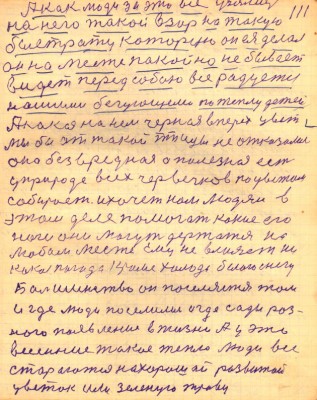 А как люди за это все
на него такой взор на такую
быстрату которую он сделал
он на месте спокойно не бывает
видит перед собою все радуется
нашими бегующеми по теплу детей
А какая на нем черная в перех цвет
мы бы эт такой птицы не отказали
она без вредная а полезная ест
у природе всех червечков по цветам
собирает. и хочет нам людям в
этом деле помогат какие его
ноги они могут держатся на
любом месте ему не влияет ни
какая погода кроме холода белого снегу
Балшинство он поселяется там
и где люди поселили огдо сади раз-
ного появление в жизни А у это
весенние такое тепло люди все
стараются на хороший развитой
цветок или зеленую траву
111